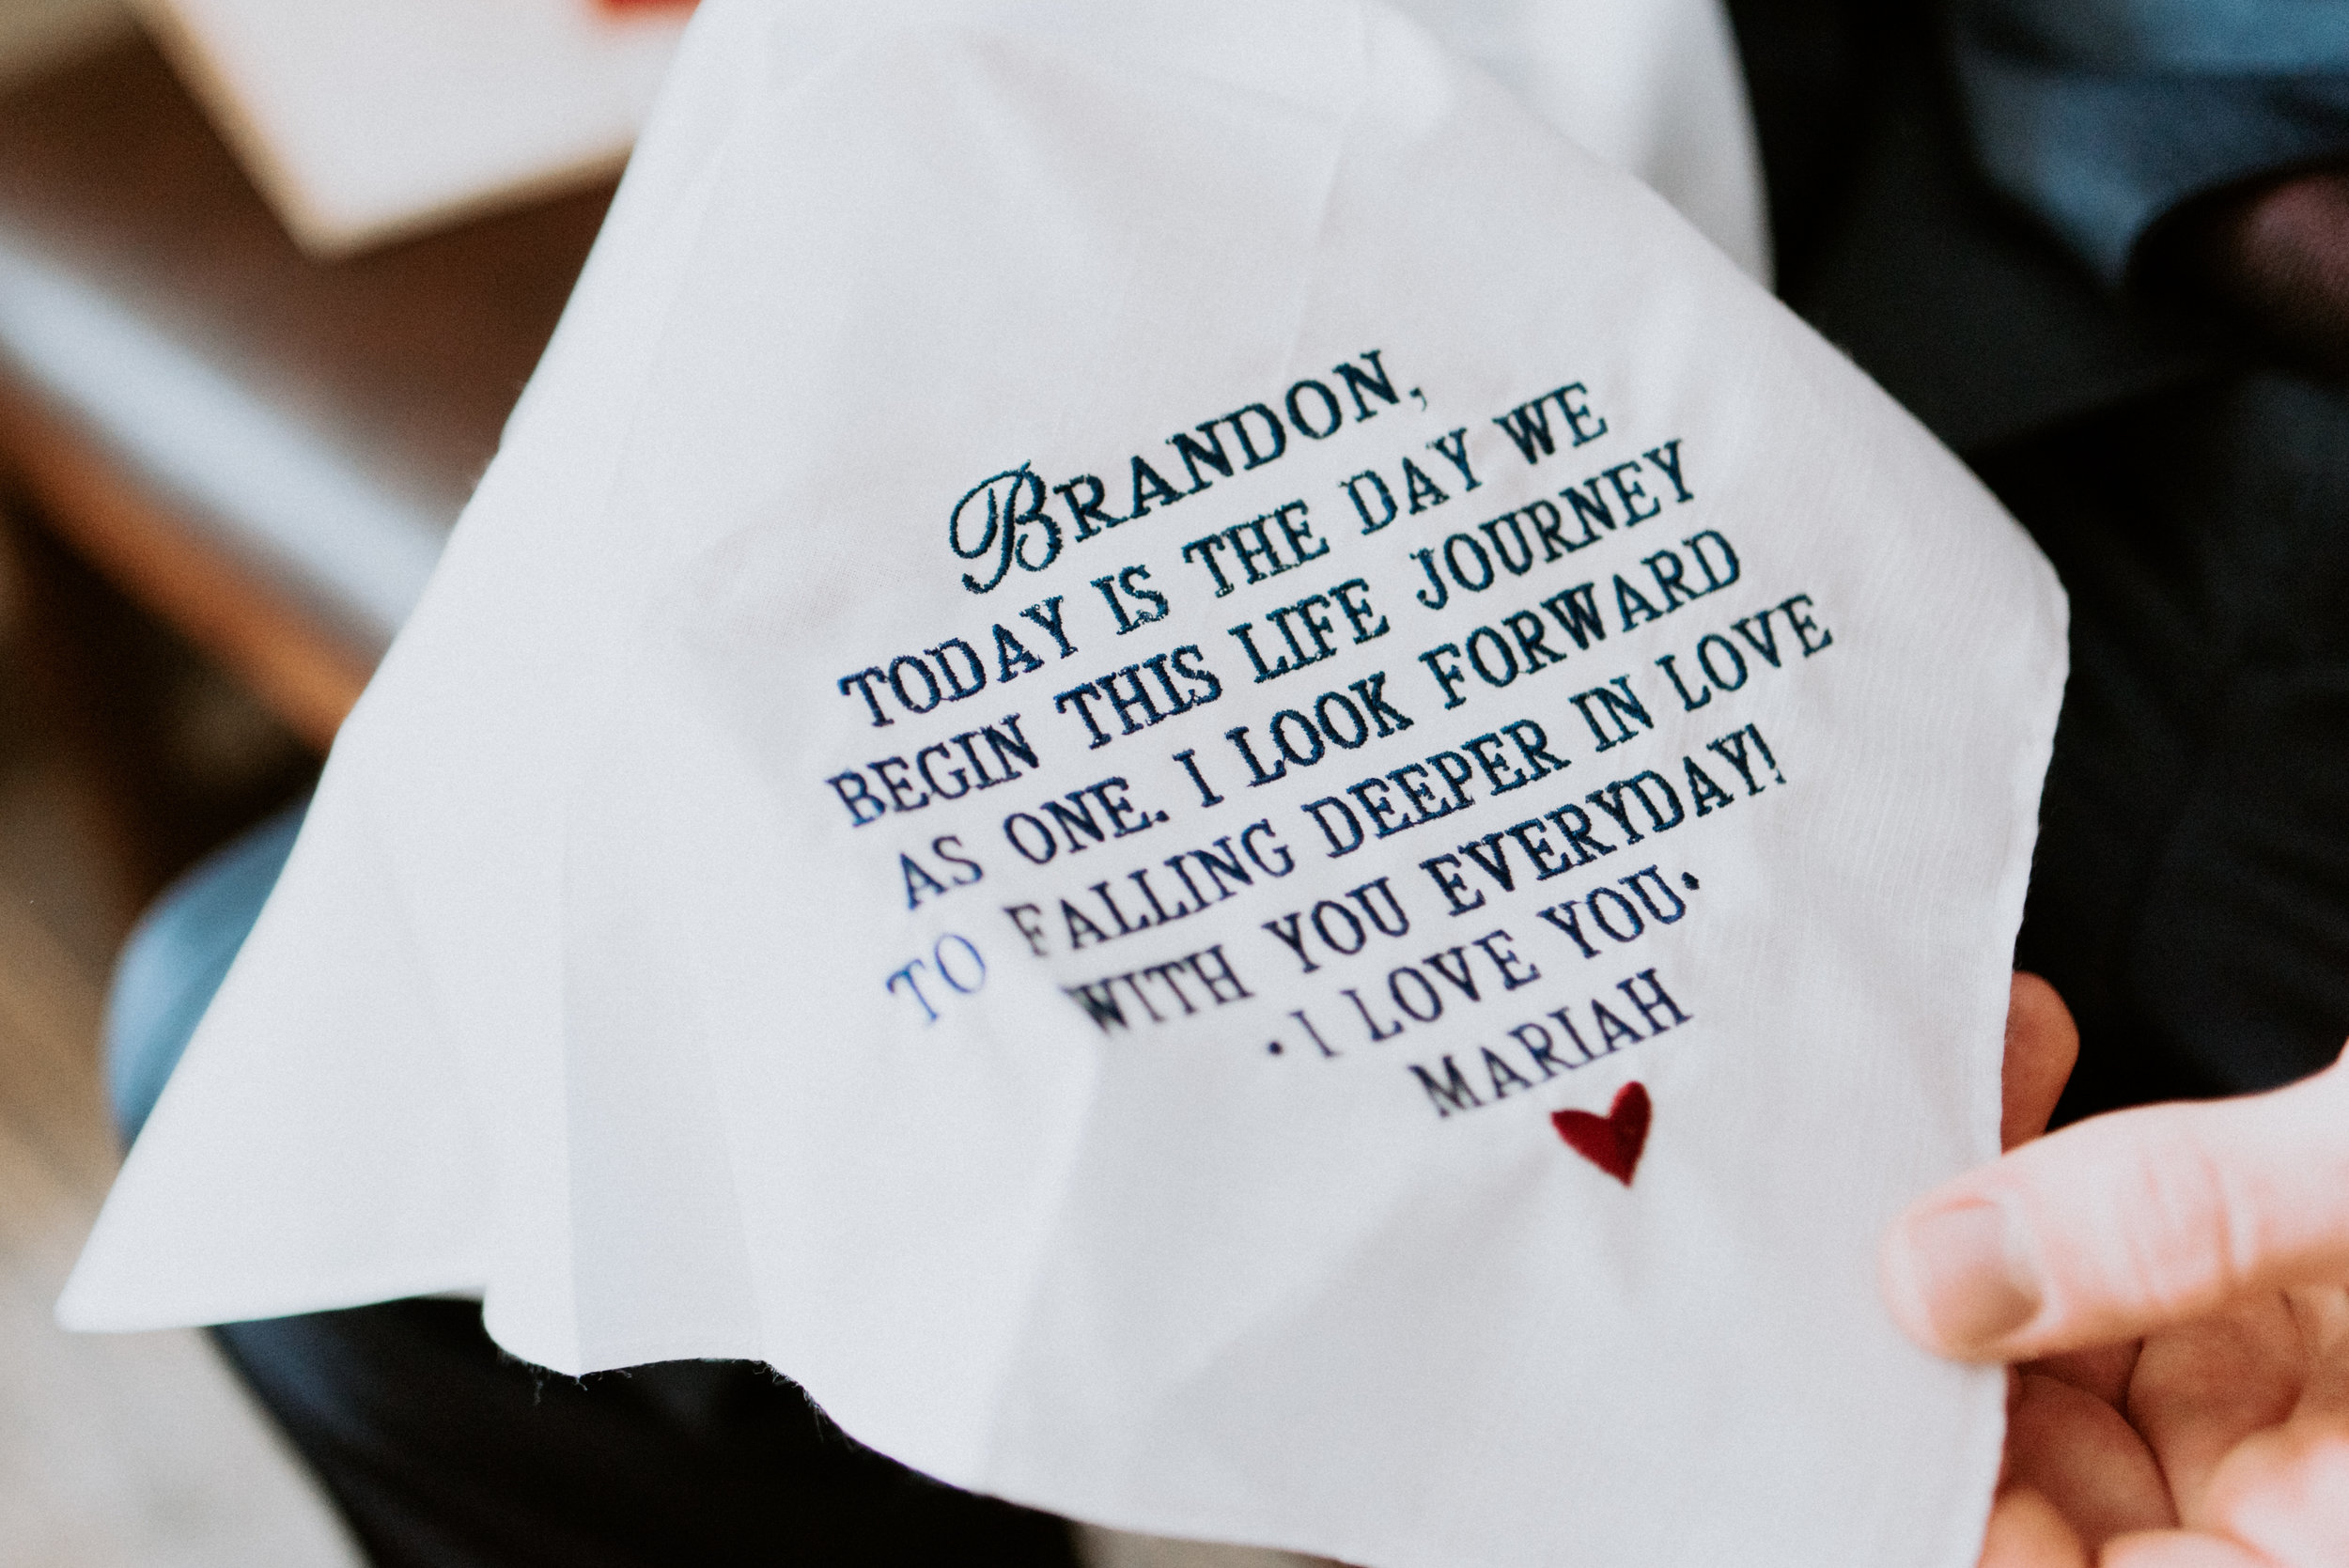 BRANDON,
TODAY IS THE DAY WE
BEGIN THIS LIFE JOURNEY
AS ONE. I LOOK FORWARD
TO FALLING DEEPER IN LOVE
WITH YOU EVERYDAY!
• I LOVE YOU •
MARIAH